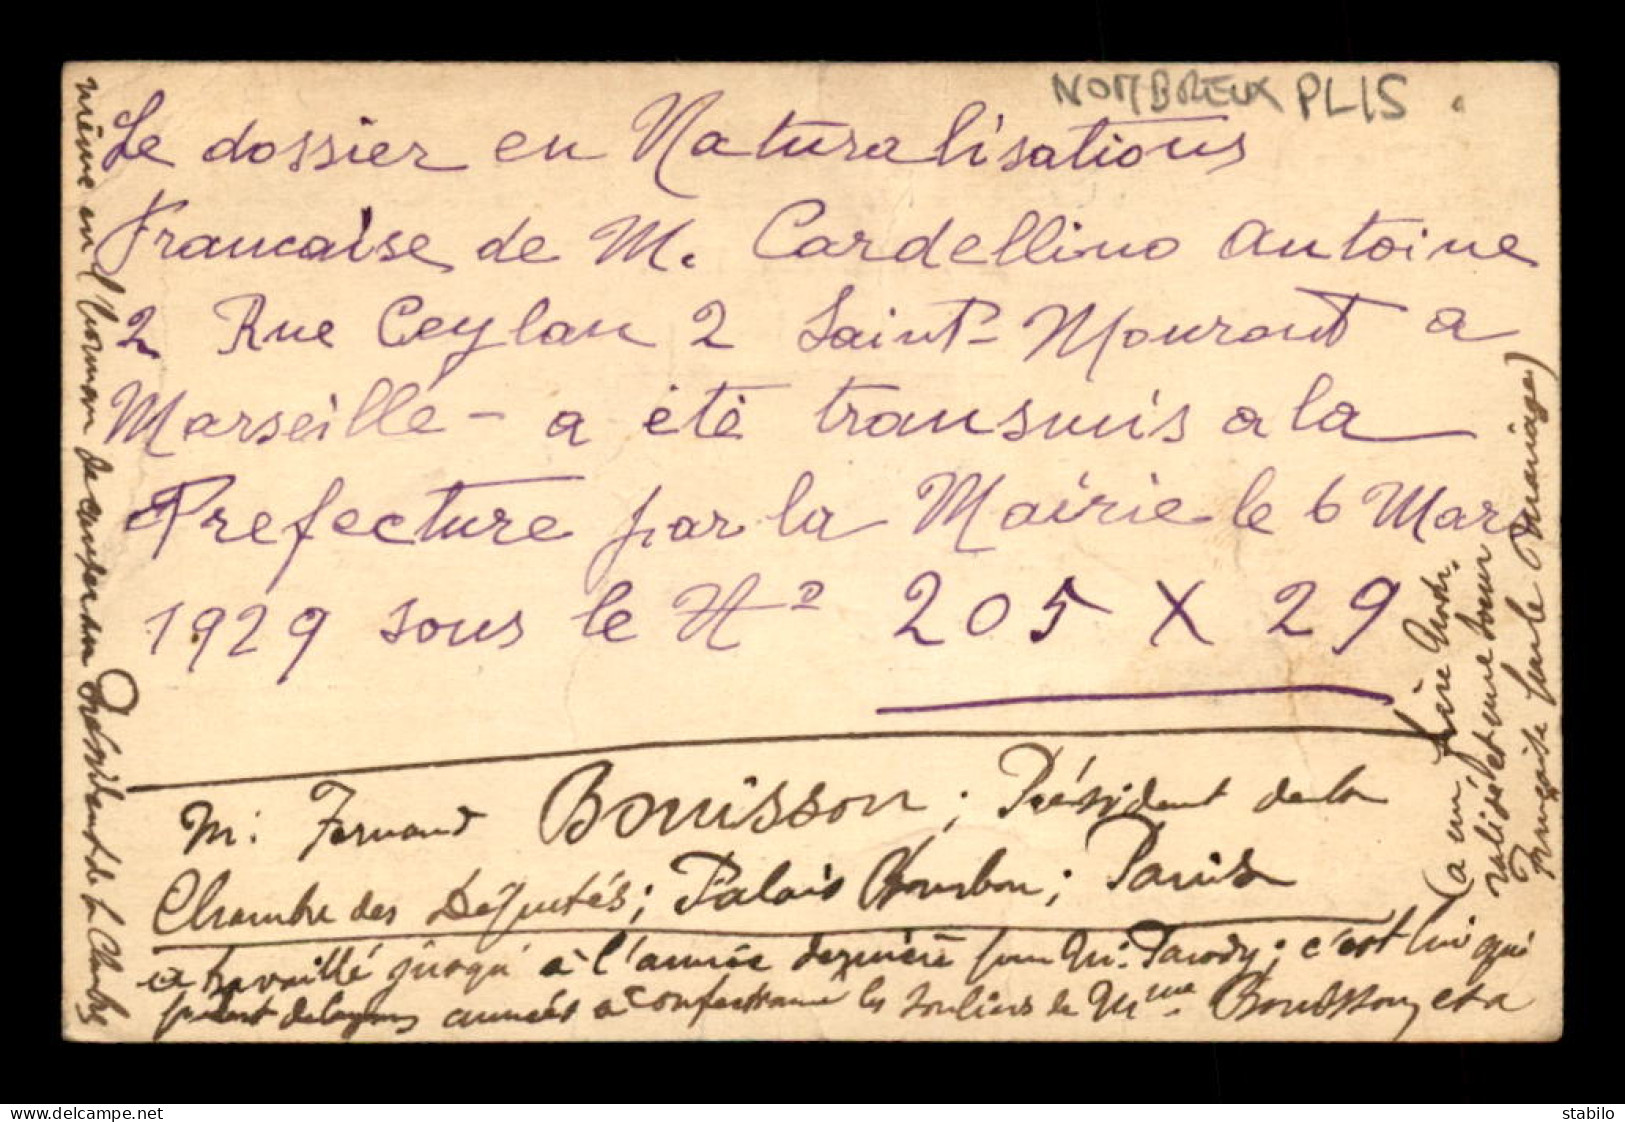 NOMBREUX PLIS
Le dossier en Naturalisations
Francaise de M. Cardellino Antoine
2 Rue Ceylan 2 Saint-Mouront a
Marseille - a été transmis a la
Prefecture par la Mairie le 6 Mars
1929 sous le No 205 X 29
M. Fernand Bouisson; Président de la
Chambre des Députés; Palais Bourbon; Paris
a travaillé jusqu'à l'année dernière pour M. Parody; c'est lui qui
pendant de longues années a confectionné les souliers de Mme Bouisson, et a
même eu l'honneur de causer au Président de la Chambre
(a un frère
ralisé et une soeur
Française par le Mariage)
www.delcampe.net
stabilo